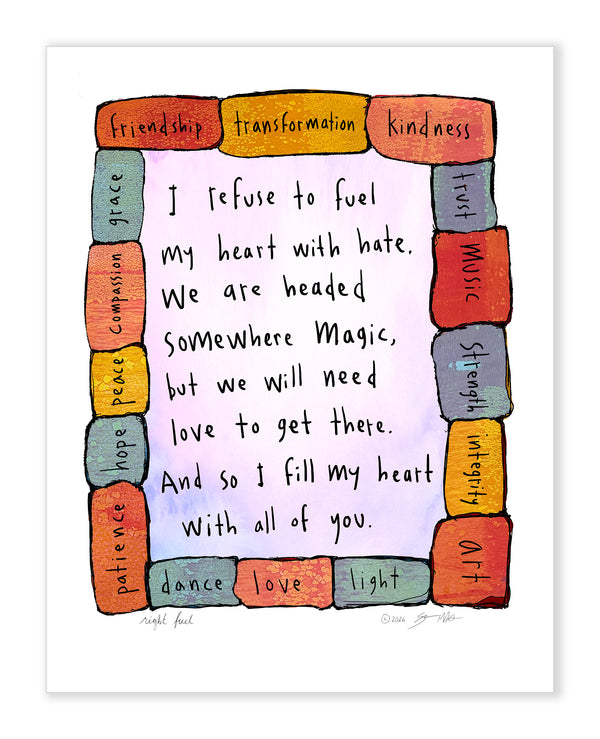 friendship
transformation
kindness
grace
compassion
peace
hope
patience
trust
Music
Strength
integrity
art
I refuse to fuel
my heart with hate.
We are headed
somewhere Magic,
but we will need
love to get there.
And so I fill my heart
with all of you.
dance
love
light
right fuel
©2026